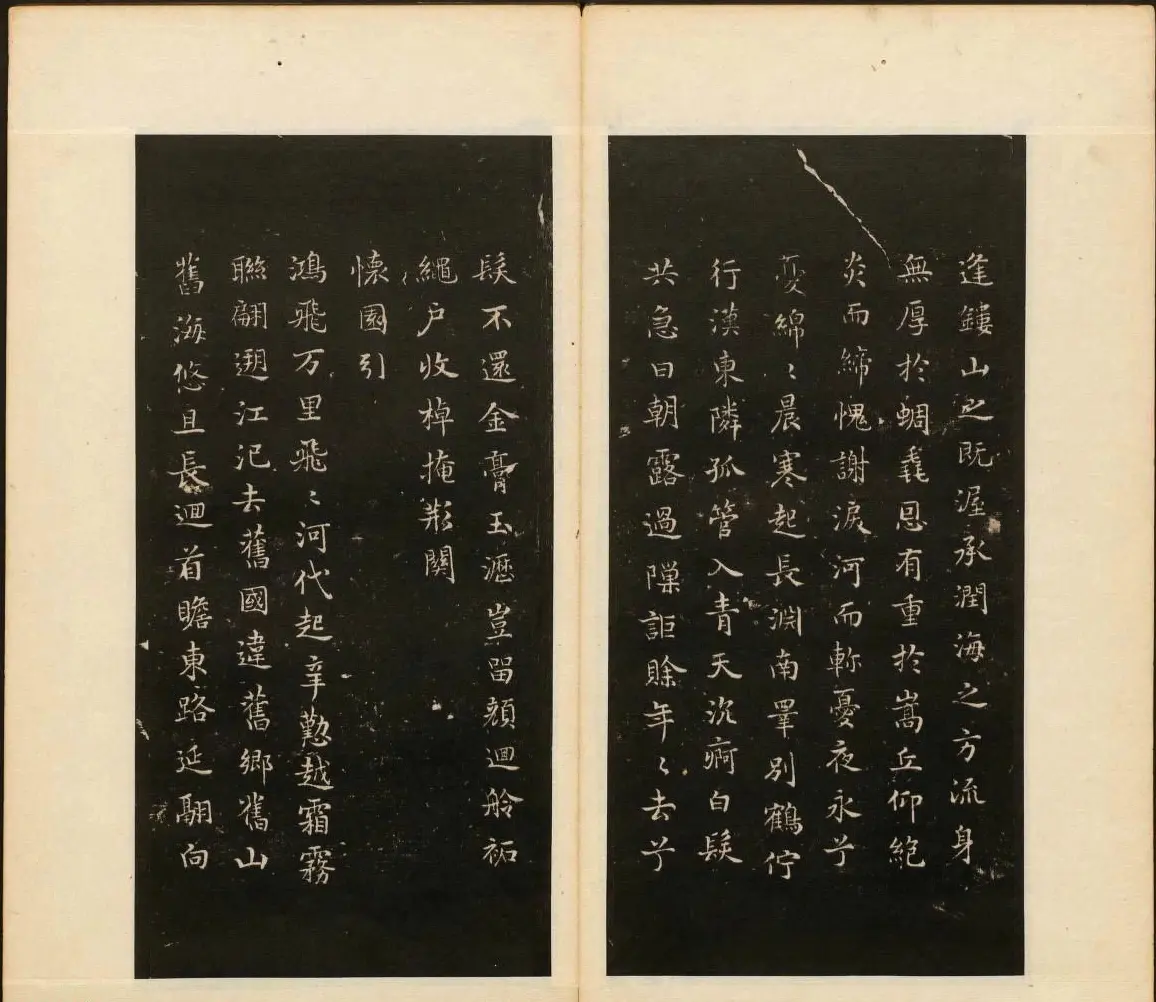 逢鏤山之既渥承潤海之方流身
無厚於蜩毳恩有重於嵩丘仰絶
炎而締愧謝淚河而軫憂夜永兮
憂綿〻晨寒起長淵南罼別鶴佇
行漢東隣孤管入青天沉痾白髮
共急日朝露過隟詎賒年〻去兮
髮不還金膏玉瀝豈留顔迴舲祏
繩户收棹掩荆關
懷園引
鴻飛万里飛〻河代起辛懃越霜霧
聯翩遡江汜去舊國違舊鄉舊山
舊海悠且長迴首瞻東路延翮向